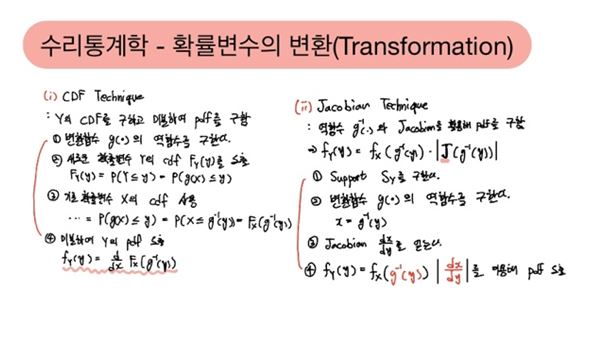 수리통계학 - 확률변수의 변환(Transformation)
(i) CDF Technique
: Y의 CDF를 구하고 미분하여 pdf를 구함
① 변환함수 g(•)의 역함수를 구한다.
② 새로운 확률변수 Y의 cdf F_Y(y)를 도출
F_Y(y) = P(Y ≤ y) = P(g(x) ≤ y)
③ 기존 확률변수 X의 cdf 사용
... = P(g(x) ≤ y) = P(X ≤ g⁻¹(y)) = F_X(g⁻¹(y))
④ 미분하여 Y의 pdf 도출
f_Y(y) = d/dx F_X(g⁻¹(y))
(ii) Jacobian Technique
: 역함수 g⁻¹(•)와 Jacobian을 활용해 pdf를 구함
→ f_Y(y) = f_X(g⁻¹(y)) · |J(g⁻¹(y))|
① Support S_Y를 구한다.
② 변환함수 g(•)의 역함수를 구한다.
x = g⁻¹(y)
③ Jacobian dx/dy를 얻는다.
④ f_Y(y) = f_X(g⁻¹(y)) |dx/dy|를 이용해 pdf 도출